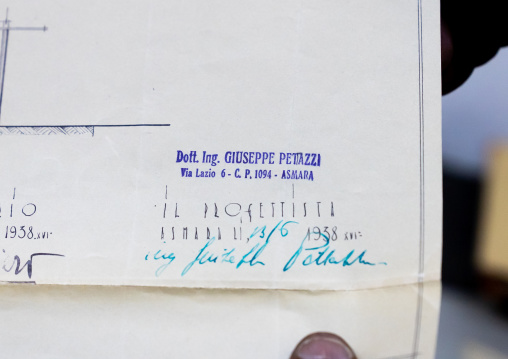 Dott. Ing. GIUSEPPE PETTAZZI
Via Lazio 6 - C. P. 1094 - ASMARA
IO
1938.XVI-
IL PROGETTISTA
ASMARA LI, 13/6 1938 XVI-
ing Giuseppe Pettazzi